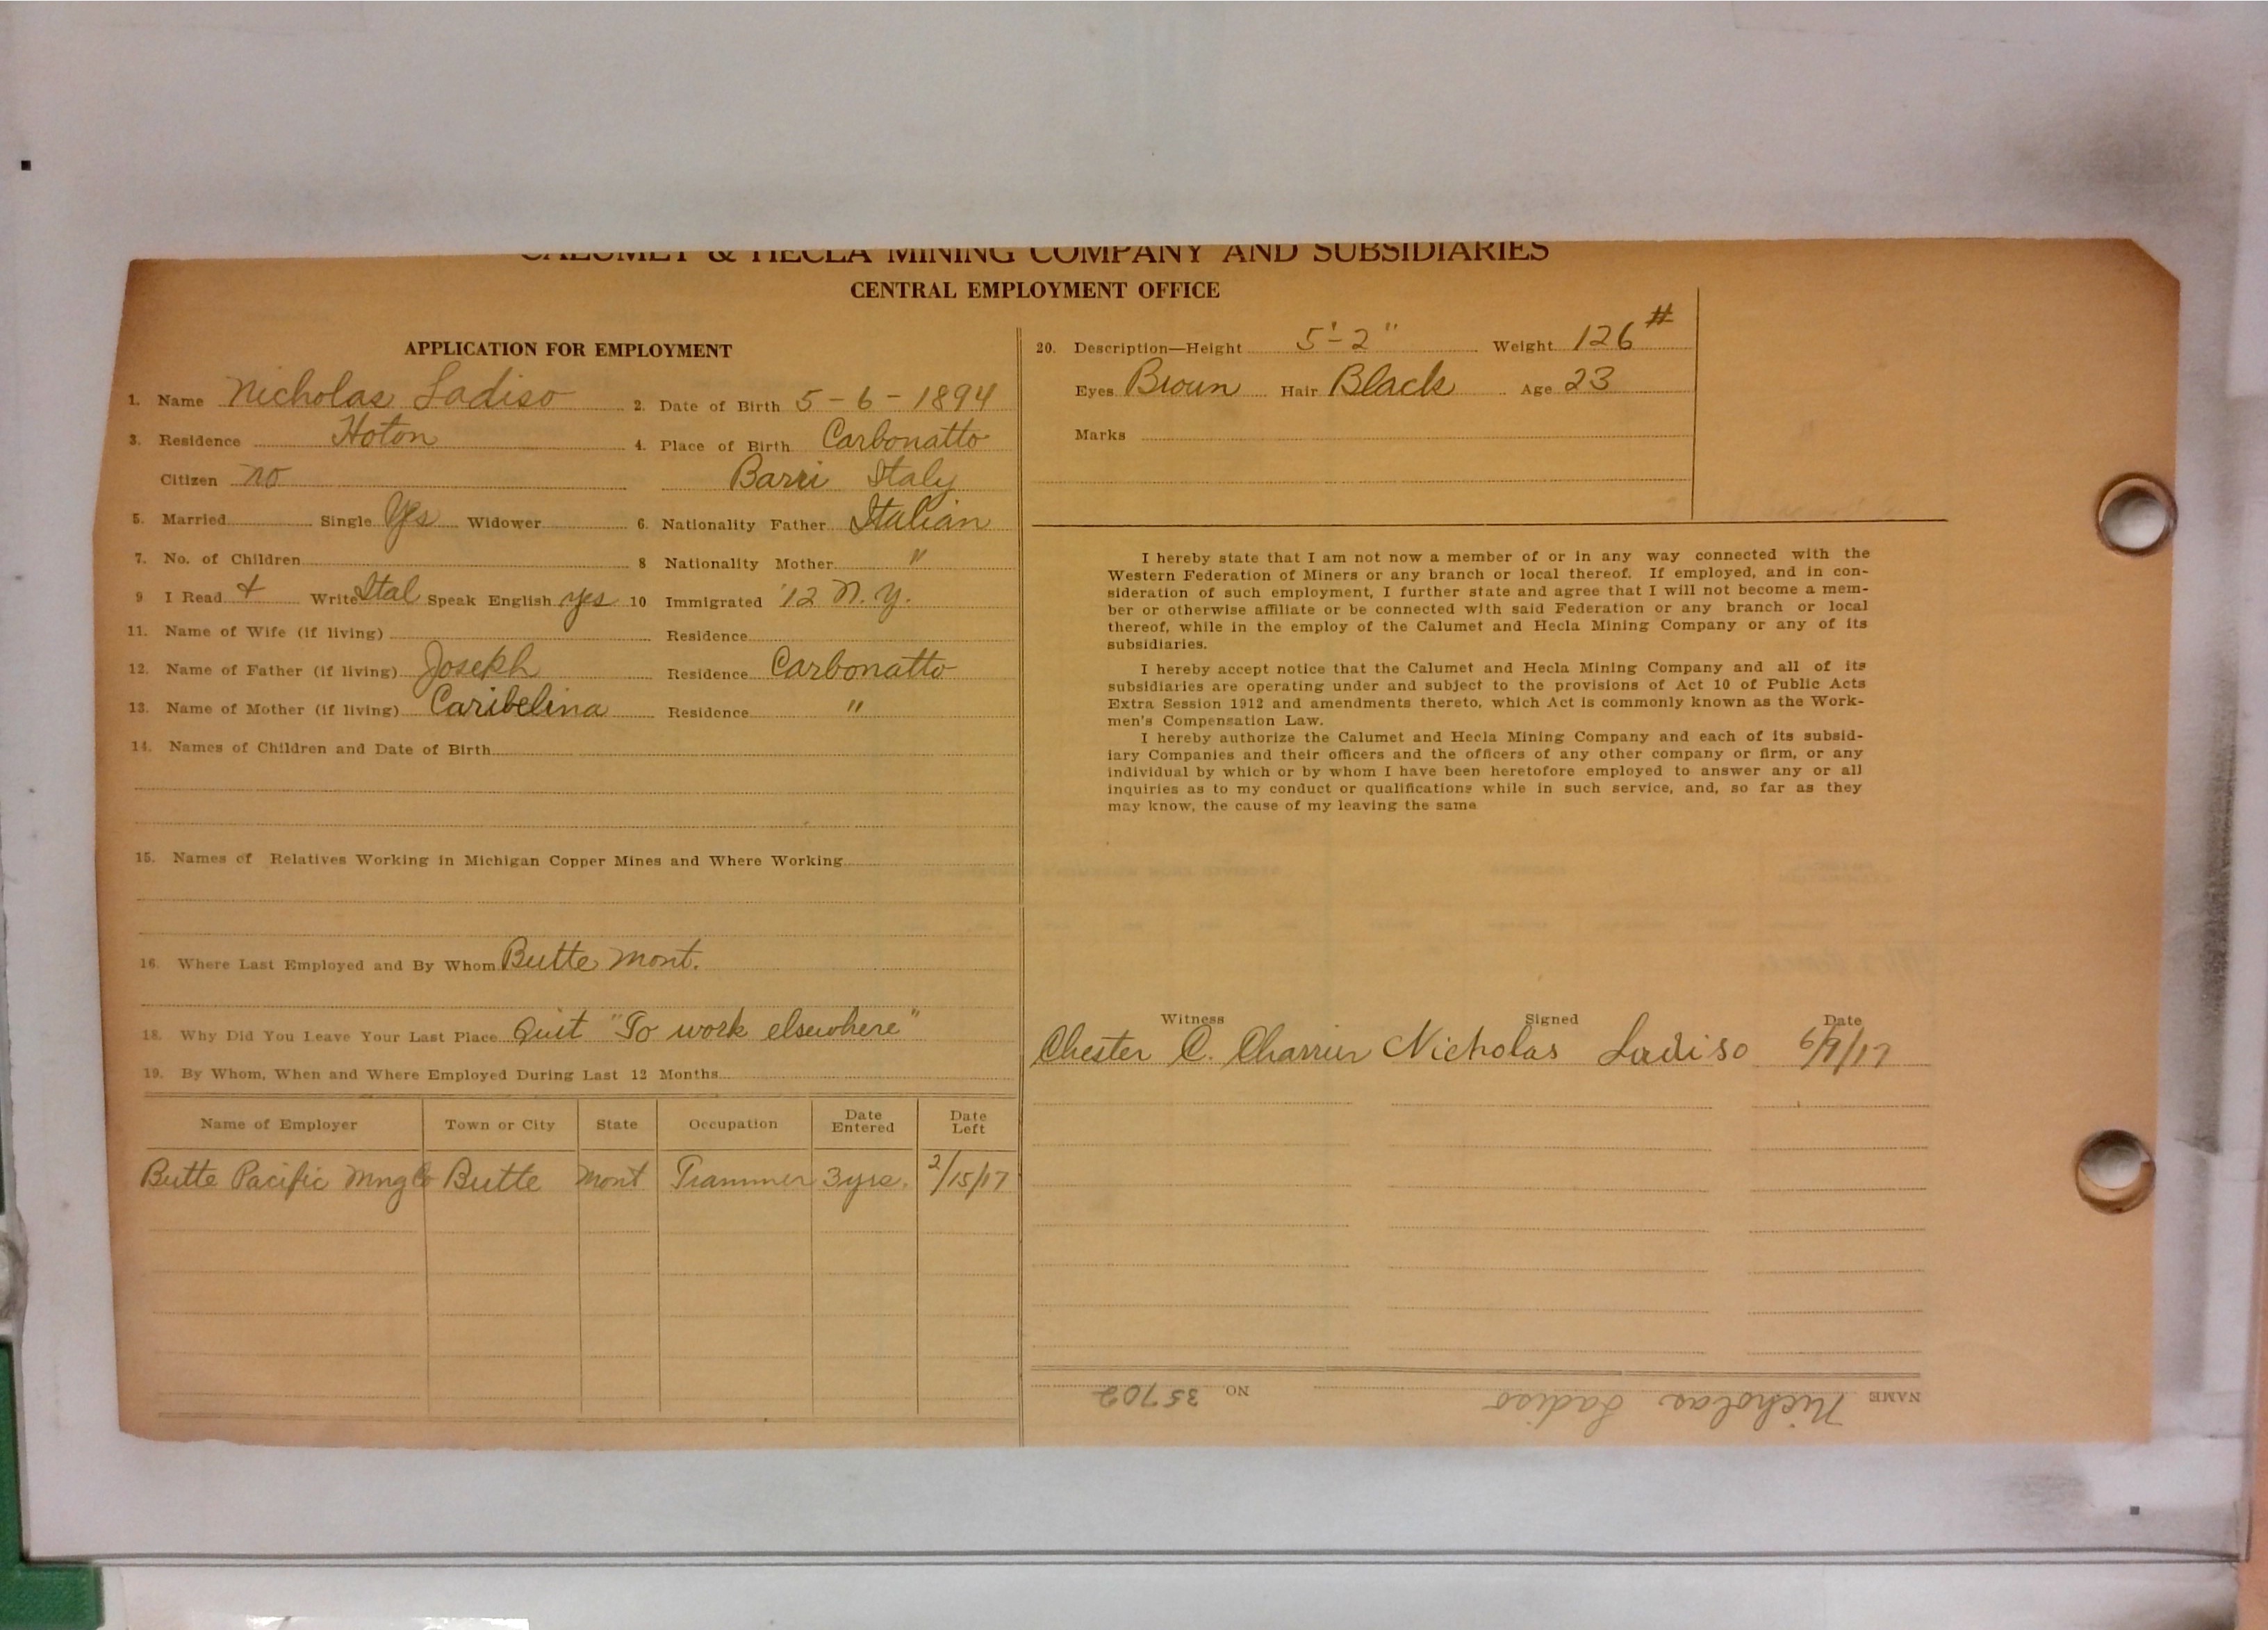 CALUMET & HECLA MINING COMPANY AND SUBSIDIARIES
CENTRAL EMPLOYMENT OFFICE
APPLICATION FOR EMPLOYMENT
1. Name Nicholas Ladiso 2. Date of Birth 5-6-1894
3. Residence Hoton 4. Place of Birth Carbonatto
Citizen no Barri Italy
5. Married Single Yes Widower 6. Nationality Father Italian
7. No. of Children 8 Nationality Mother "
9 I Read + Write Ital Speak English yes 10 Immigrated '12 N.Y.
11. Name of Wife (if living) Residence
12. Name of Father (if living) Joseph Residence Carbonatto
13. Name of Mother (if living) Caribelina Residence "
14. Names of Children and Date of Birth
15. Names of Relatives Working in Michigan Copper Mines and Where Working
16. Where Last Employed and By Whom Butte Mont.
18. Why Did You Leave Your Last Place Quit "To work elsewhere"
19. By Whom, When and Where Employed During Last 12 Months
Name of Employer Town or City State Occupation Date Entered Date Left
Butte Pacific Mng Co Butte Mont Trammer 3 yrs. 2/15/17
20. Description—Height 5'-2" Weight 126#
Eyes Brown Hair Black Age 23
Marks
I hereby state that I am not now a member of or in any way connected with the
Western Federation of Miners or any branch or local thereof. If employed, and in con-
sideration of such employment, I further state and agree that I will not become a mem-
ber or otherwise affiliate or be connected with said Federation or any branch or local
thereof, while in the employ of the Calumet and Hecla Mining Company or any of its
subsidiaries.
I hereby accept notice that the Calumet and Hecla Mining Company and all of its
subsidiaries are operating under and subject to the provisions of Act 10 of Public Acts
Extra Session 1912 and amendments thereto, which Act is commonly known as the Work-
men's Compensation Law.
I hereby authorize the Calumet and Hecla Mining Company and each of its subsid-
iary Companies and their officers and the officers of any other company or firm, or any
individual by which or by whom I have been heretofore employed to answer any or all
inquiries as to my conduct or qualifications while in such service, and, so far as they
may know, the cause of my leaving the same
Witness Signed Date
Chester C. Charrier Nicholas Ladiso 6/9/17
NAME Nicholas Ladiso NO 35702